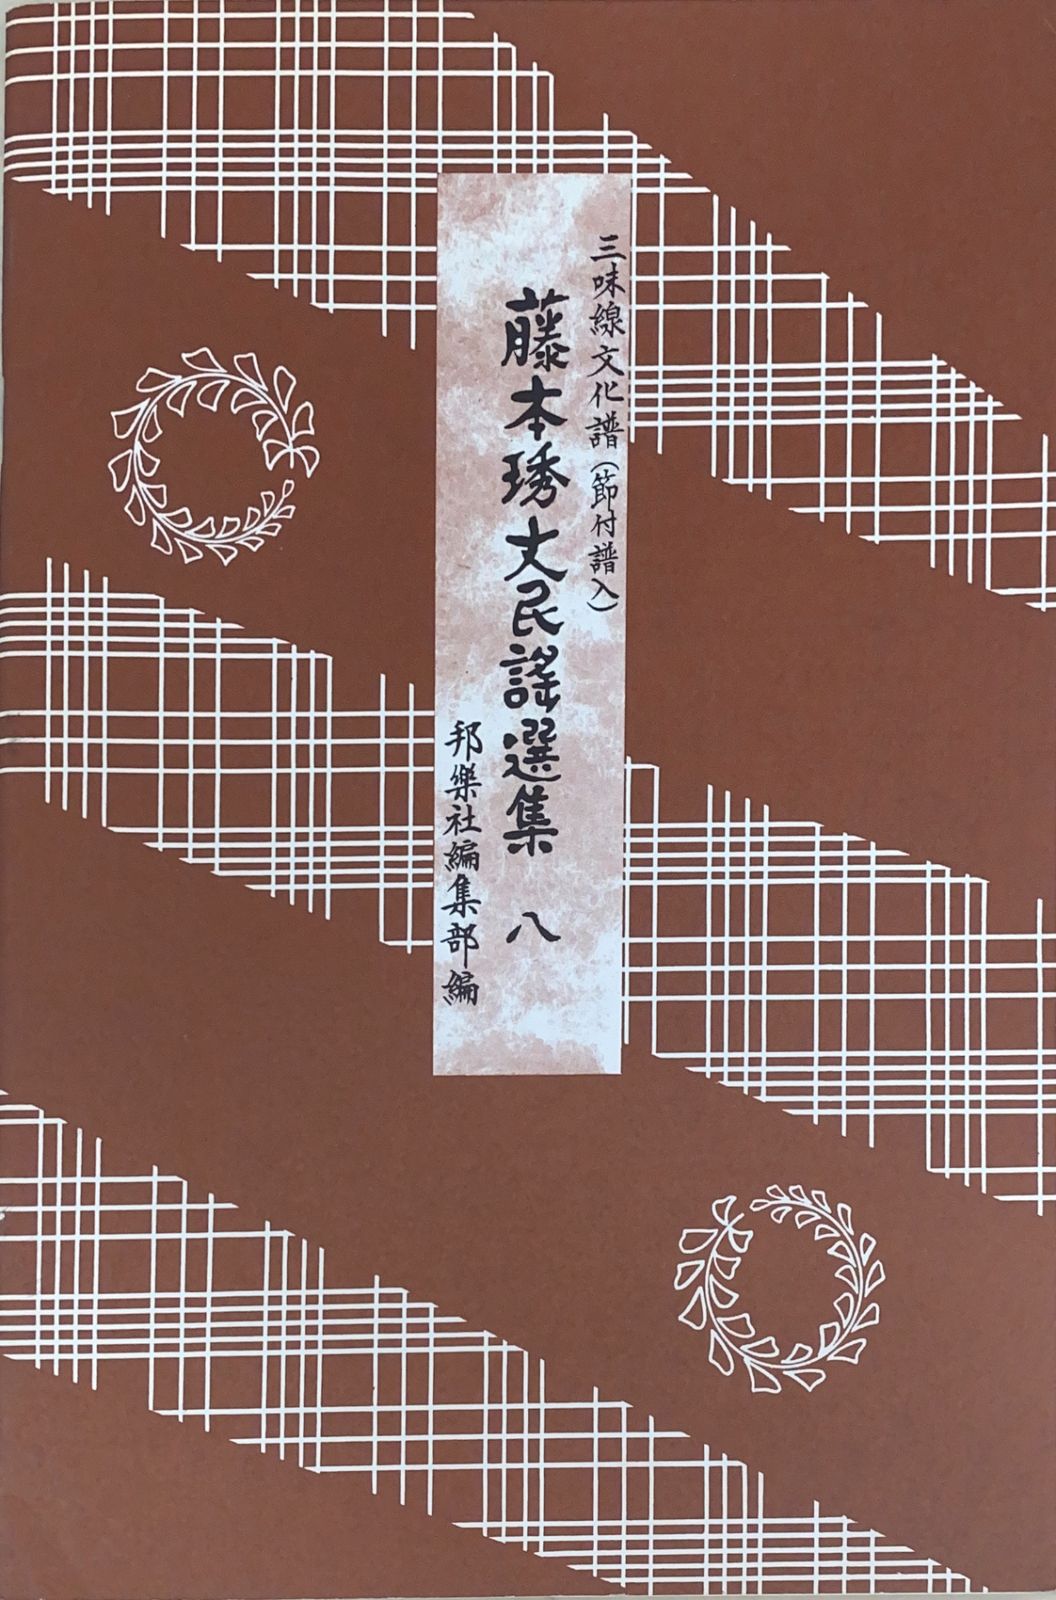 三味線文化譜(節付譜入)
藤本琇丈民謡選集 八
邦樂社編集部編